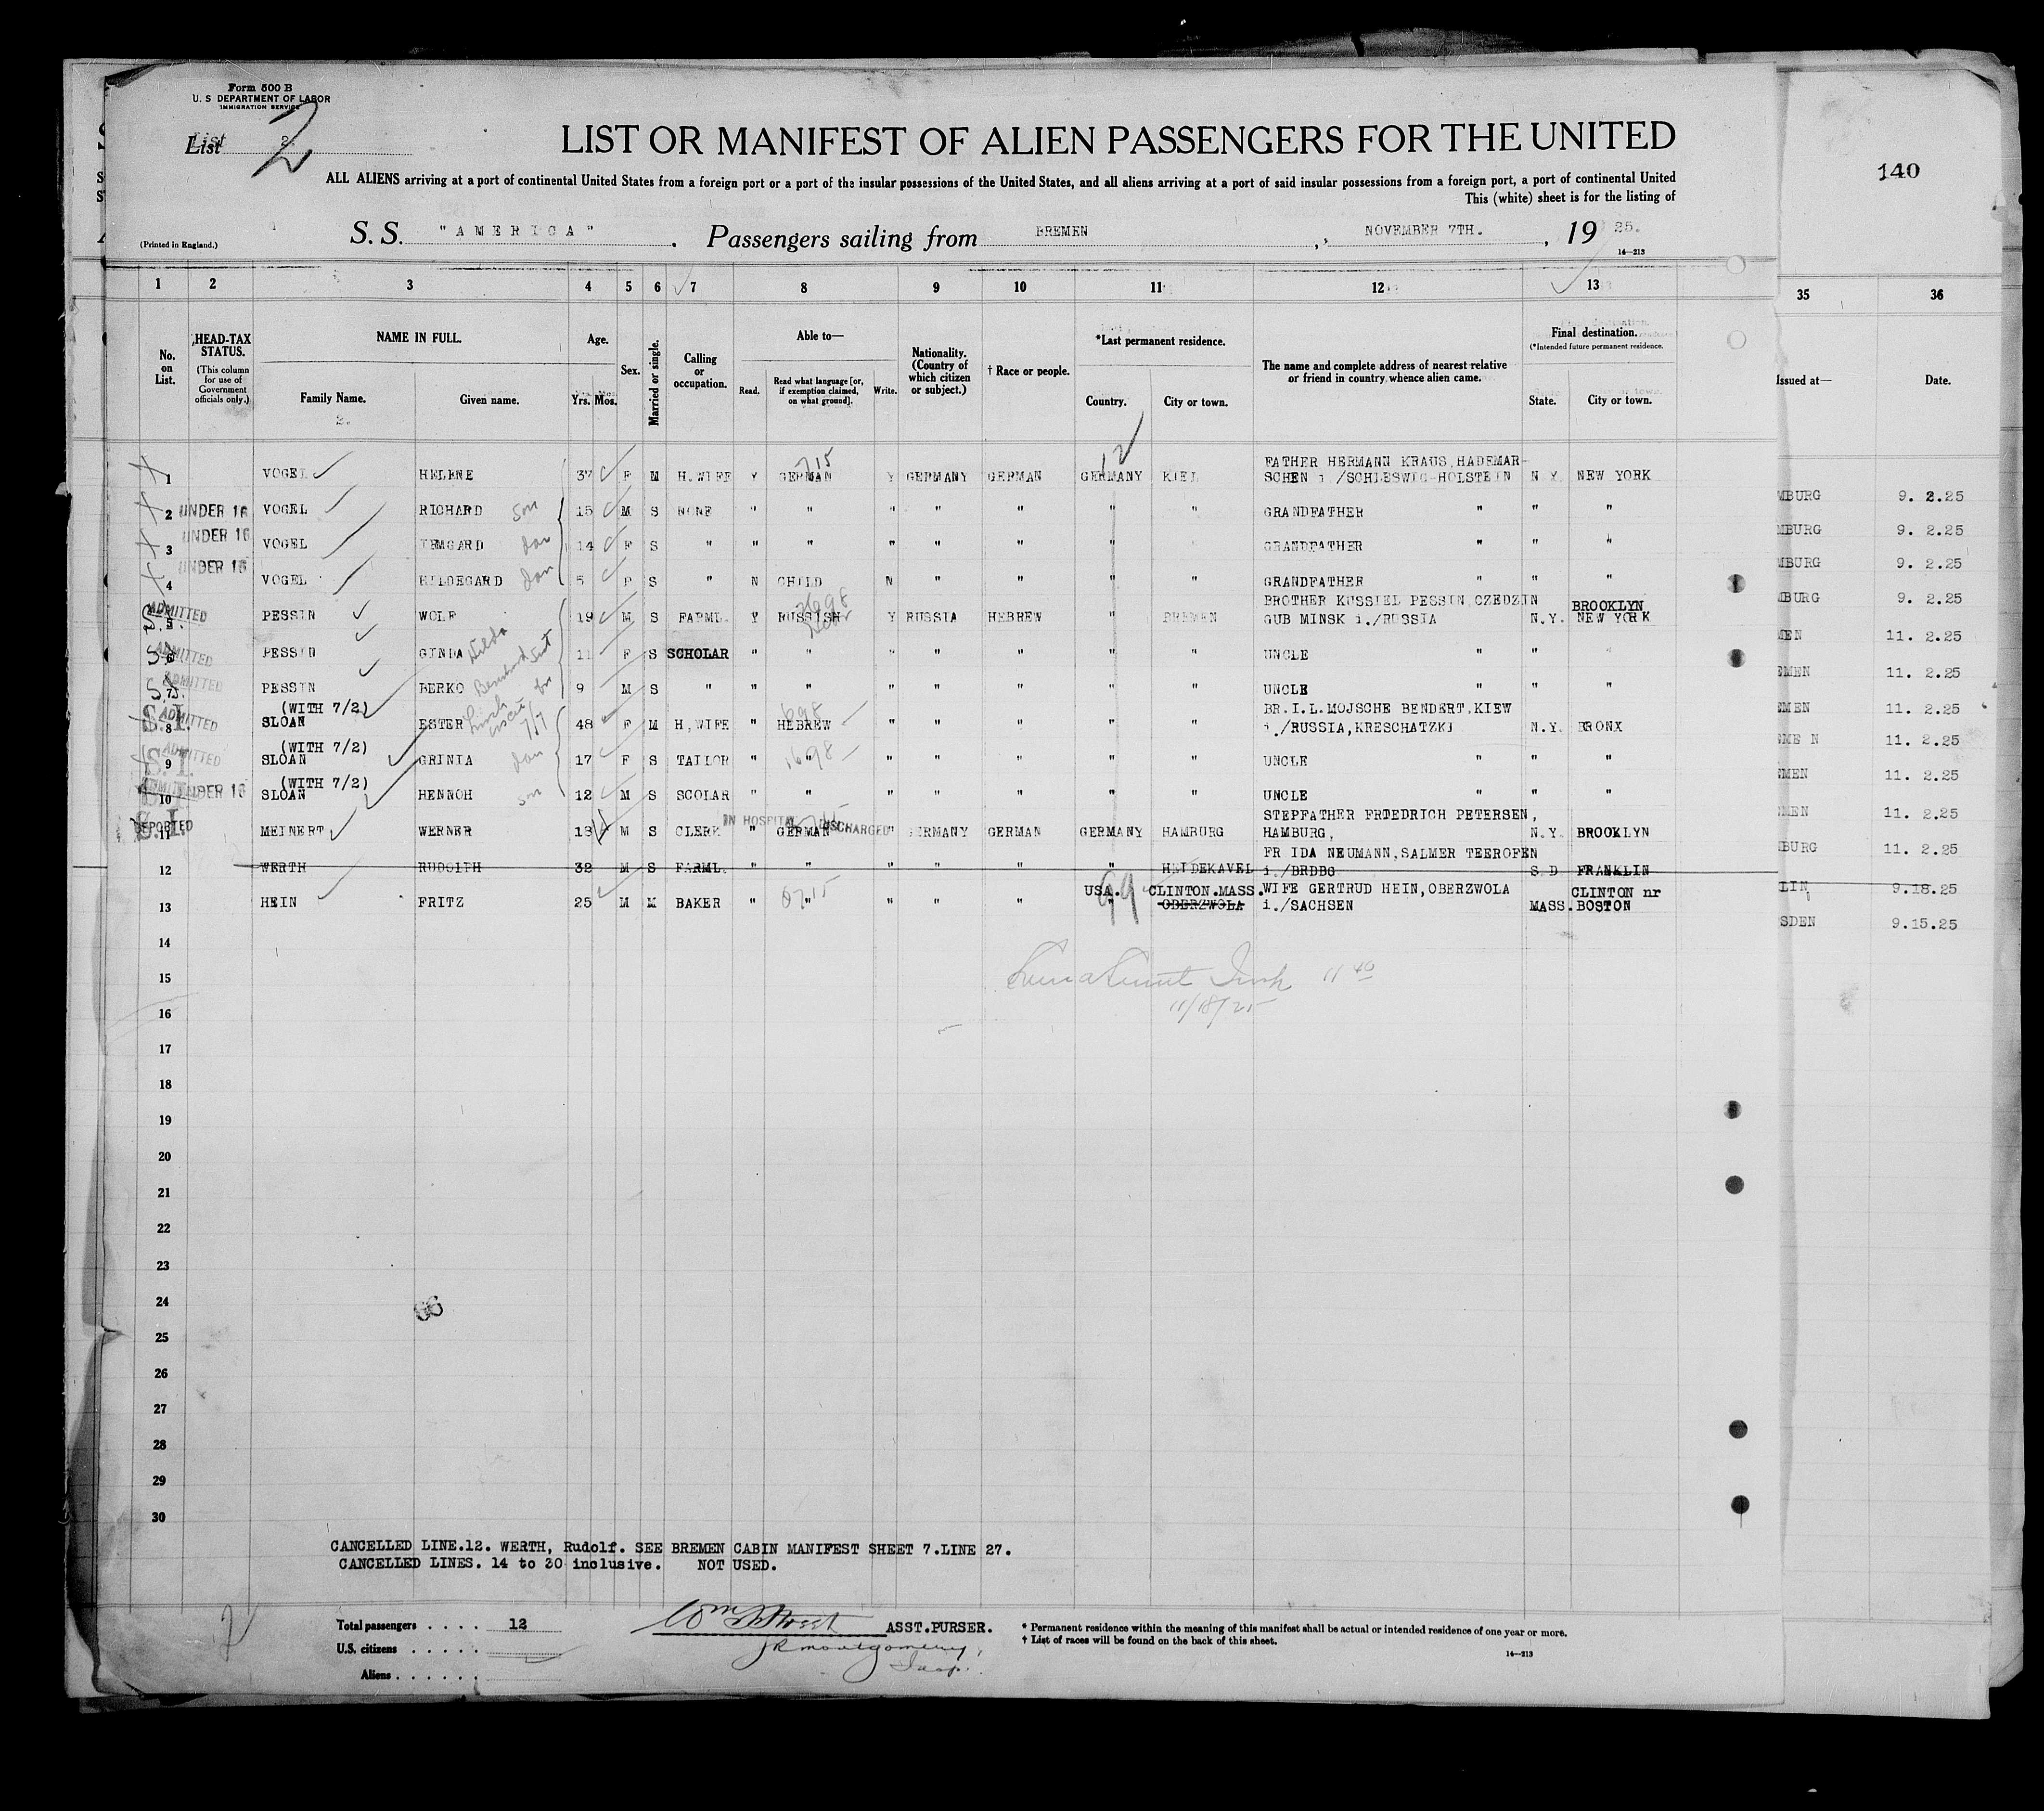 Form 500 B
U. S DEPARTMENT OF LABOR
IMMIGRATION SERVICE
List 2
2
LIST OR MANIFEST OF ALIEN PASSENGERS FOR THE UNITED
140
ALL ALIENS arriving at a port of continental United States from a foreign port or a port of the insular possessions of the United States, and all aliens arriving at a port of said insular possessions from a foreign port, a port of continental United
This (white) sheet is for the listing of
(Printed in England.)
S. S. "AMERICA" . Passengers sailing from BREMEN , NOVEMBER 7TH. , 19 25.
14—213
1 2 3 4 5 6 7 8 9 10 11 12 13 35 36
No. on List.
HEAD-TAX STATUS.
(This column for use of Government officials only.)
NAME IN FULL.
Family Name. Given name.
Age.
Yrs. Mos.
Sex.
Married or single.
Calling or occupation.
Able to—
Read. Read what language [or, if exemption claimed, on what ground]. Write.
Nationality. (Country of which citizen or subject.)
† Race or people.
*Last permanent residence.
Country. City or town.
The name and complete address of nearest relative or friend in country whence alien came.
Final destination.
(*Intended future permanent residence.
State. City or town.
Issued at— Date.
12
715
FATHER HERMANN KRAUS, HADEMAR-
1 VOGEL HELENE 37 F M H.WIFE Y GERMAN Y GERMANY GERMAN GERMANY KIEL SCHEN i./SCHLESWIG-HOLSTEIN N.Y. NEW YORK
2 UNDER 16 VOGEL RICHARD son 15 M S NONE " " " " " " " GRANDFATHER " " " MBURG 9. 2.25
3 UNDER 16 VOGEL IRMGARD dau 14 F S " " " " " " " GRANDFATHER " " " MBURG 9. 2.25
4 UNDER 16 VOGEL HILDEGARD dau 5 F S " N CHILD N " " " " GRANDFATHER " " " MBURG 9. 2.25
ADMITTED BROTHER KUSSIEL PESSIN, CZEDZIN BROOKLYN MBURG 9. 2.25
5 PESSIN WOLF 19 M S FARML. Y RUSSISH Y RUSSIA HEBREW " BREMEN GUB MINSK i./RUSSIA N.Y. NEW YORK
MEN 11. 2.25
6 ADMITTED PESSIN GINDA Hilda 11 F S SCHOLAR " " " " " " " UNCLE " " "
EMEN 11. 2.25
7 ADMITTED PESSIN BERKO 9 M S " " " " " " " " UNCLE " " "
(WITH 7/2) BR.I.L.MOJSCHE BENDERT, KIEW EMEN 11. 2.25
8 S.I. ADMITTED SLOAN ESTER 48 F M H.WIFE " HEBREW " " " " " i./RUSSIA, KRESCHATZKJ N.Y. BRONX
EME N 11. 2.25
(WITH 7/2)
9 S.I. ADMITTED SLOAN GRINIA dau 17 F S TAILOR " " " " " " " UNCLE " " "
EMEN 11. 2.25
(WITH 7/2)
10 SLOAN HENNOH son 12 M S SCOLAR " " " " " " " UNCLE " " "
IN HOSPITAL DISCHARGED STEPFATHER FRIEDRICH PETERSEN, EMEN 11. 2.25
11 S.I. DEPORTED MEINERT WERNER 13 M S CLERK " GERMAN " GERMANY GERMAN GERMANY HAMBURG HAMBURG, N.Y. BROOKLYN
FR IDA NEUMANN, SALMER TEEROFEN BURG 11. 2.25
12 WERTH RUDOLPH 32 M S FARML. " " " " " " HEIDEKAVEL i./BRDBG S D FRANKLIN
LIN 9.18.25
USA. CLINTON.MASS. WIFE GERTRUD HEIN, OBERZWOLA CLINTON nr
13 HEIN FRITZ 25 M M BAKER " " " " " " OBERZWOLA i./SACHSEN MASS. BOSTON
99
SDEN 9.15.25
14
15
11 40
11/18/25
16
17
18
19
20
21
22
23
24
66
25
26
27
28
29
30
CANCELLED LINE.12. WERTH, Rudolf. SEE BREMEN CABIN MANIFEST SHEET 7.LINE 27.
CANCELLED LINES. 14 to 30 inclusive. NOT USED.
Total passengers . . . . 12
U.S. citizens . . . . .
Aliens . . . . . .
Wm Street ASST.PURSER.
JR Montgomery,
Insp.
* Permanent residence within the meaning of this manifest shall be actual or intended residence of one year or more.
† List of races will be found on the back of this sheet.
14—213